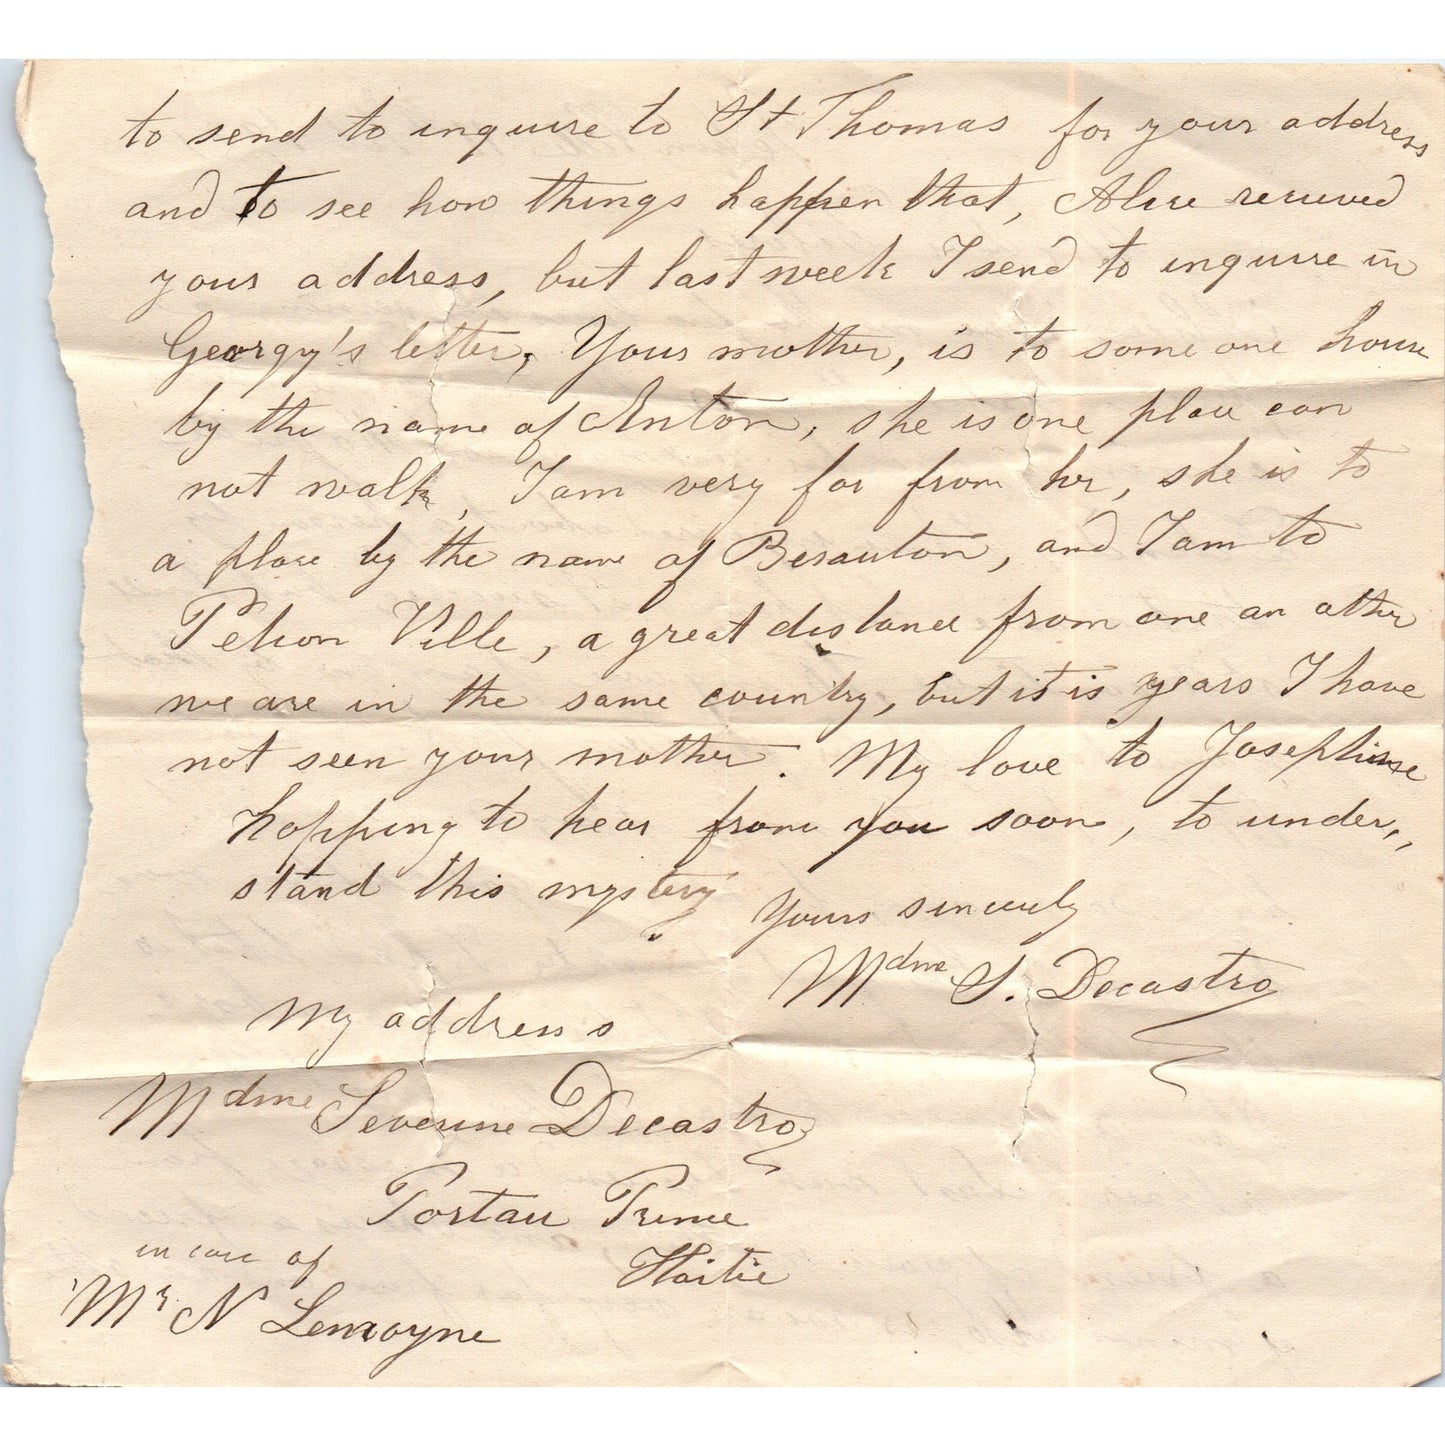 to send to inquire to St Thomas for your address
and to see how things happen that, Alice received
your address, but last week I send to inquire in
Georgy's letter, Your mother, is to some one house
by the name of Anton, she is one place can
not walk, I am very far from her, she is to
a place by the name of Bezauton, and I am to
Petion Ville, a great distance from one an other
we are in the same country, but it is years I have
not seen your mother. My love to Josephine
hopping to hear from you soon, to under,,
stand this mystery
Yours sincerely
Mdme S. Decastro
My address
Mdme Severine Decastro
Portau Prince
Haitie
in care of
Mr N Lemoyne